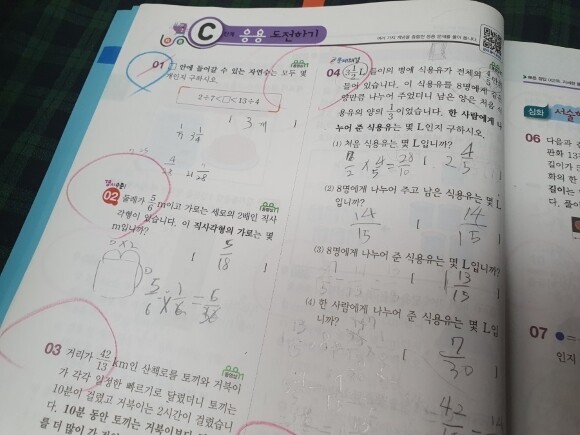 C 단계 응용 도전하기
여러 가지 개념을 종합한 응용 문제를 풀어 봅니다.
01 □ 안에 들어갈 수 있는 자연수는 모두 몇
개인지 구하시오.
2÷7<□<13÷4
1 3개 1
02 둘레가 5/6 m이고 가로는 세로의 2배인 직사
각형이 있습니다. 이 직사각형의 가로는 몇
m입니까?
5/18
5/6 × 1/6 = 6/36
03 거리가 42/13 km인 산책로를 토끼와 거북이
가 각각 일정한 빠르기로 달렸더니 토끼는
10분이 걸렸고 거북이는 2시간이 걸렸습니
다. 10분 동안 토끼는 거북이보다
를 더 많이
문제해결
04 3 1/2 L 들이의 병에 식용유가 전체의
들어 있습니다. 이 식용유를 8명에게
양만큼 나누어 주었더니 남은 양은 처음 식
용유의 양의 1/3이었습니다. 한 사람에게 나
누어 준 식용유는 몇 L인지 구하시오.
(1) 처음 식용유는 몇 L입니까?
× 4/5 = 28/10 1 2 4/5
(2) 8명에게 나누어 주고 남은 식용유는 몇 L
입니까?
14/15 1 14/15 1
(3) 8명에게 나누어 준 식용유는 몇 L입니까?
1 13/15 1
(4) 한 사람에게 나누어 준 식용유는 몇 L입
니까?
1 7/30 1
심화
06 다음과
판화 13
길이가
화의 한
길이는
다. 풀이
07
인지